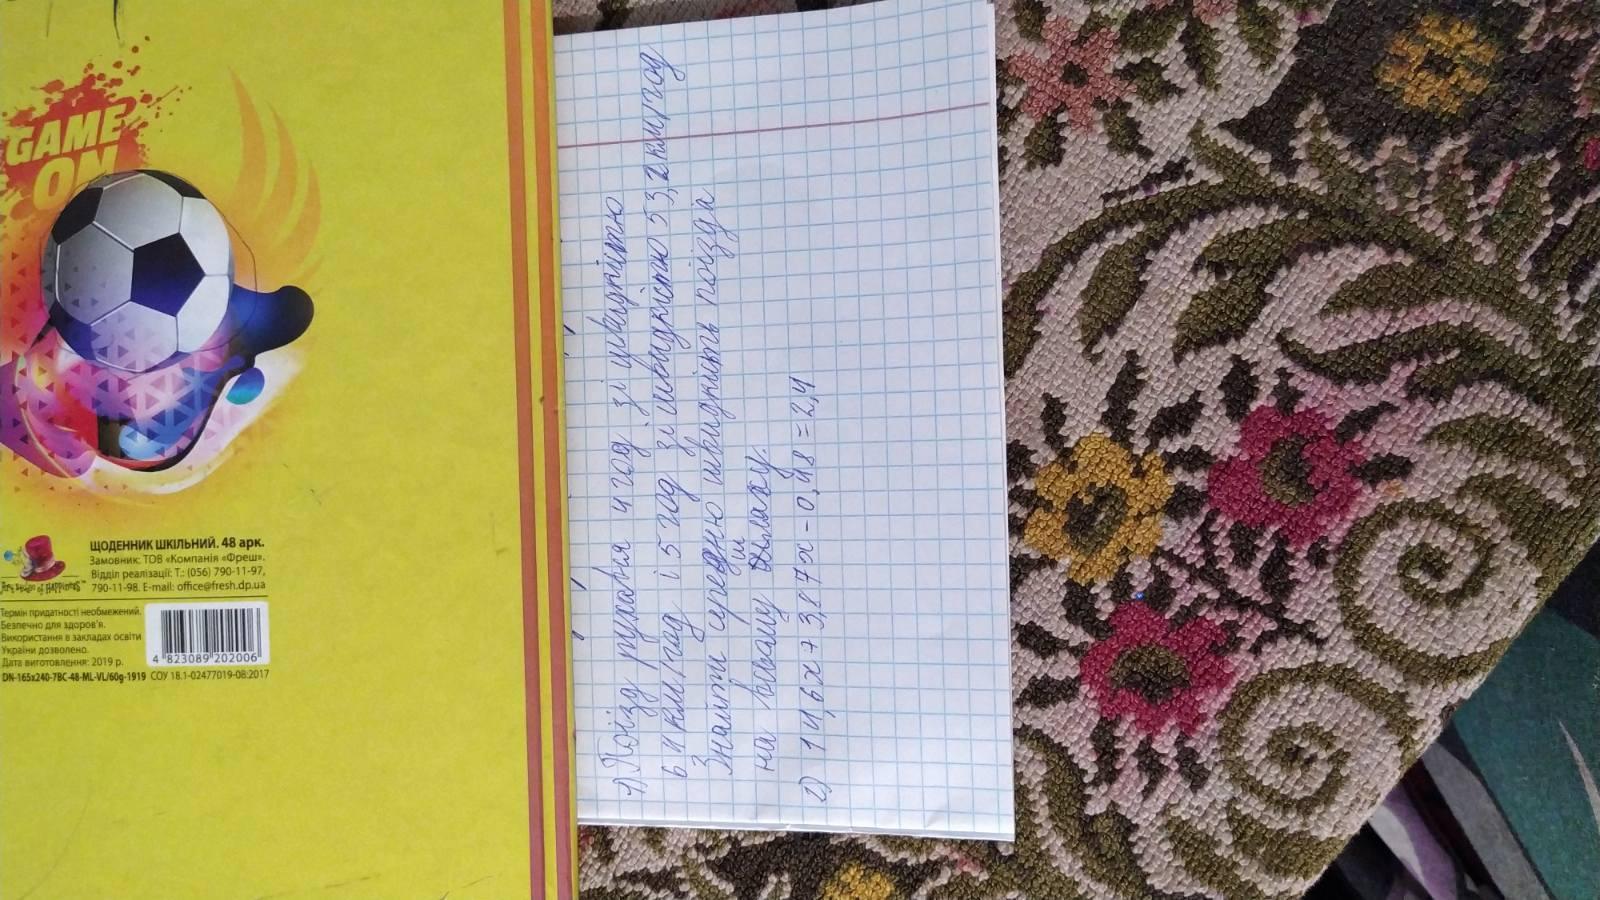 GAME
ON
ЩОДЕННИК ШКІЛЬНИЙ. 48 арк.
Замовник: ТОВ «Компанія «Фреш».
Відділ реалізації: Т.: (056) 790-11-97,
790-11-98. E-mail: office@fresh.dp.ua
Термін придатності необмежений.
Безпечно для здоров'я.
Використання в закладах освіти
України дозволено.
Дата виготовлення: 2019 р.
4 823089 202006
DN-165x240-7BC-48-ML-VL/60g-1919 СОУ 18.1-02477019-08:2017
1) Поїзд рухався 4 год зі швидкістю
64 км/год і 5 год зі швидкістю 53,2 км/год
Знайти середню швидкість поїзда
на всьому шляху.
2) 14,6x + 3,87x - 0,48 = 2,4